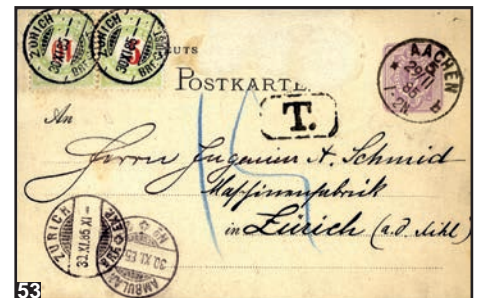 ZÜRICH
30.XI.85
BRF. DIST.
ZÜRICH
30.XI.85
BRF. DIST.
POSTKARTE
AACHEN
5
29/11
85
1-2N.
T.
15
An
Herrn Ingenieur A. Schmid
Maschinenfabrik
in Zürich (a.d. Sihl)
ZÜRICH
30.XI.85.XI-
AMBULANT
30.XI.85
53